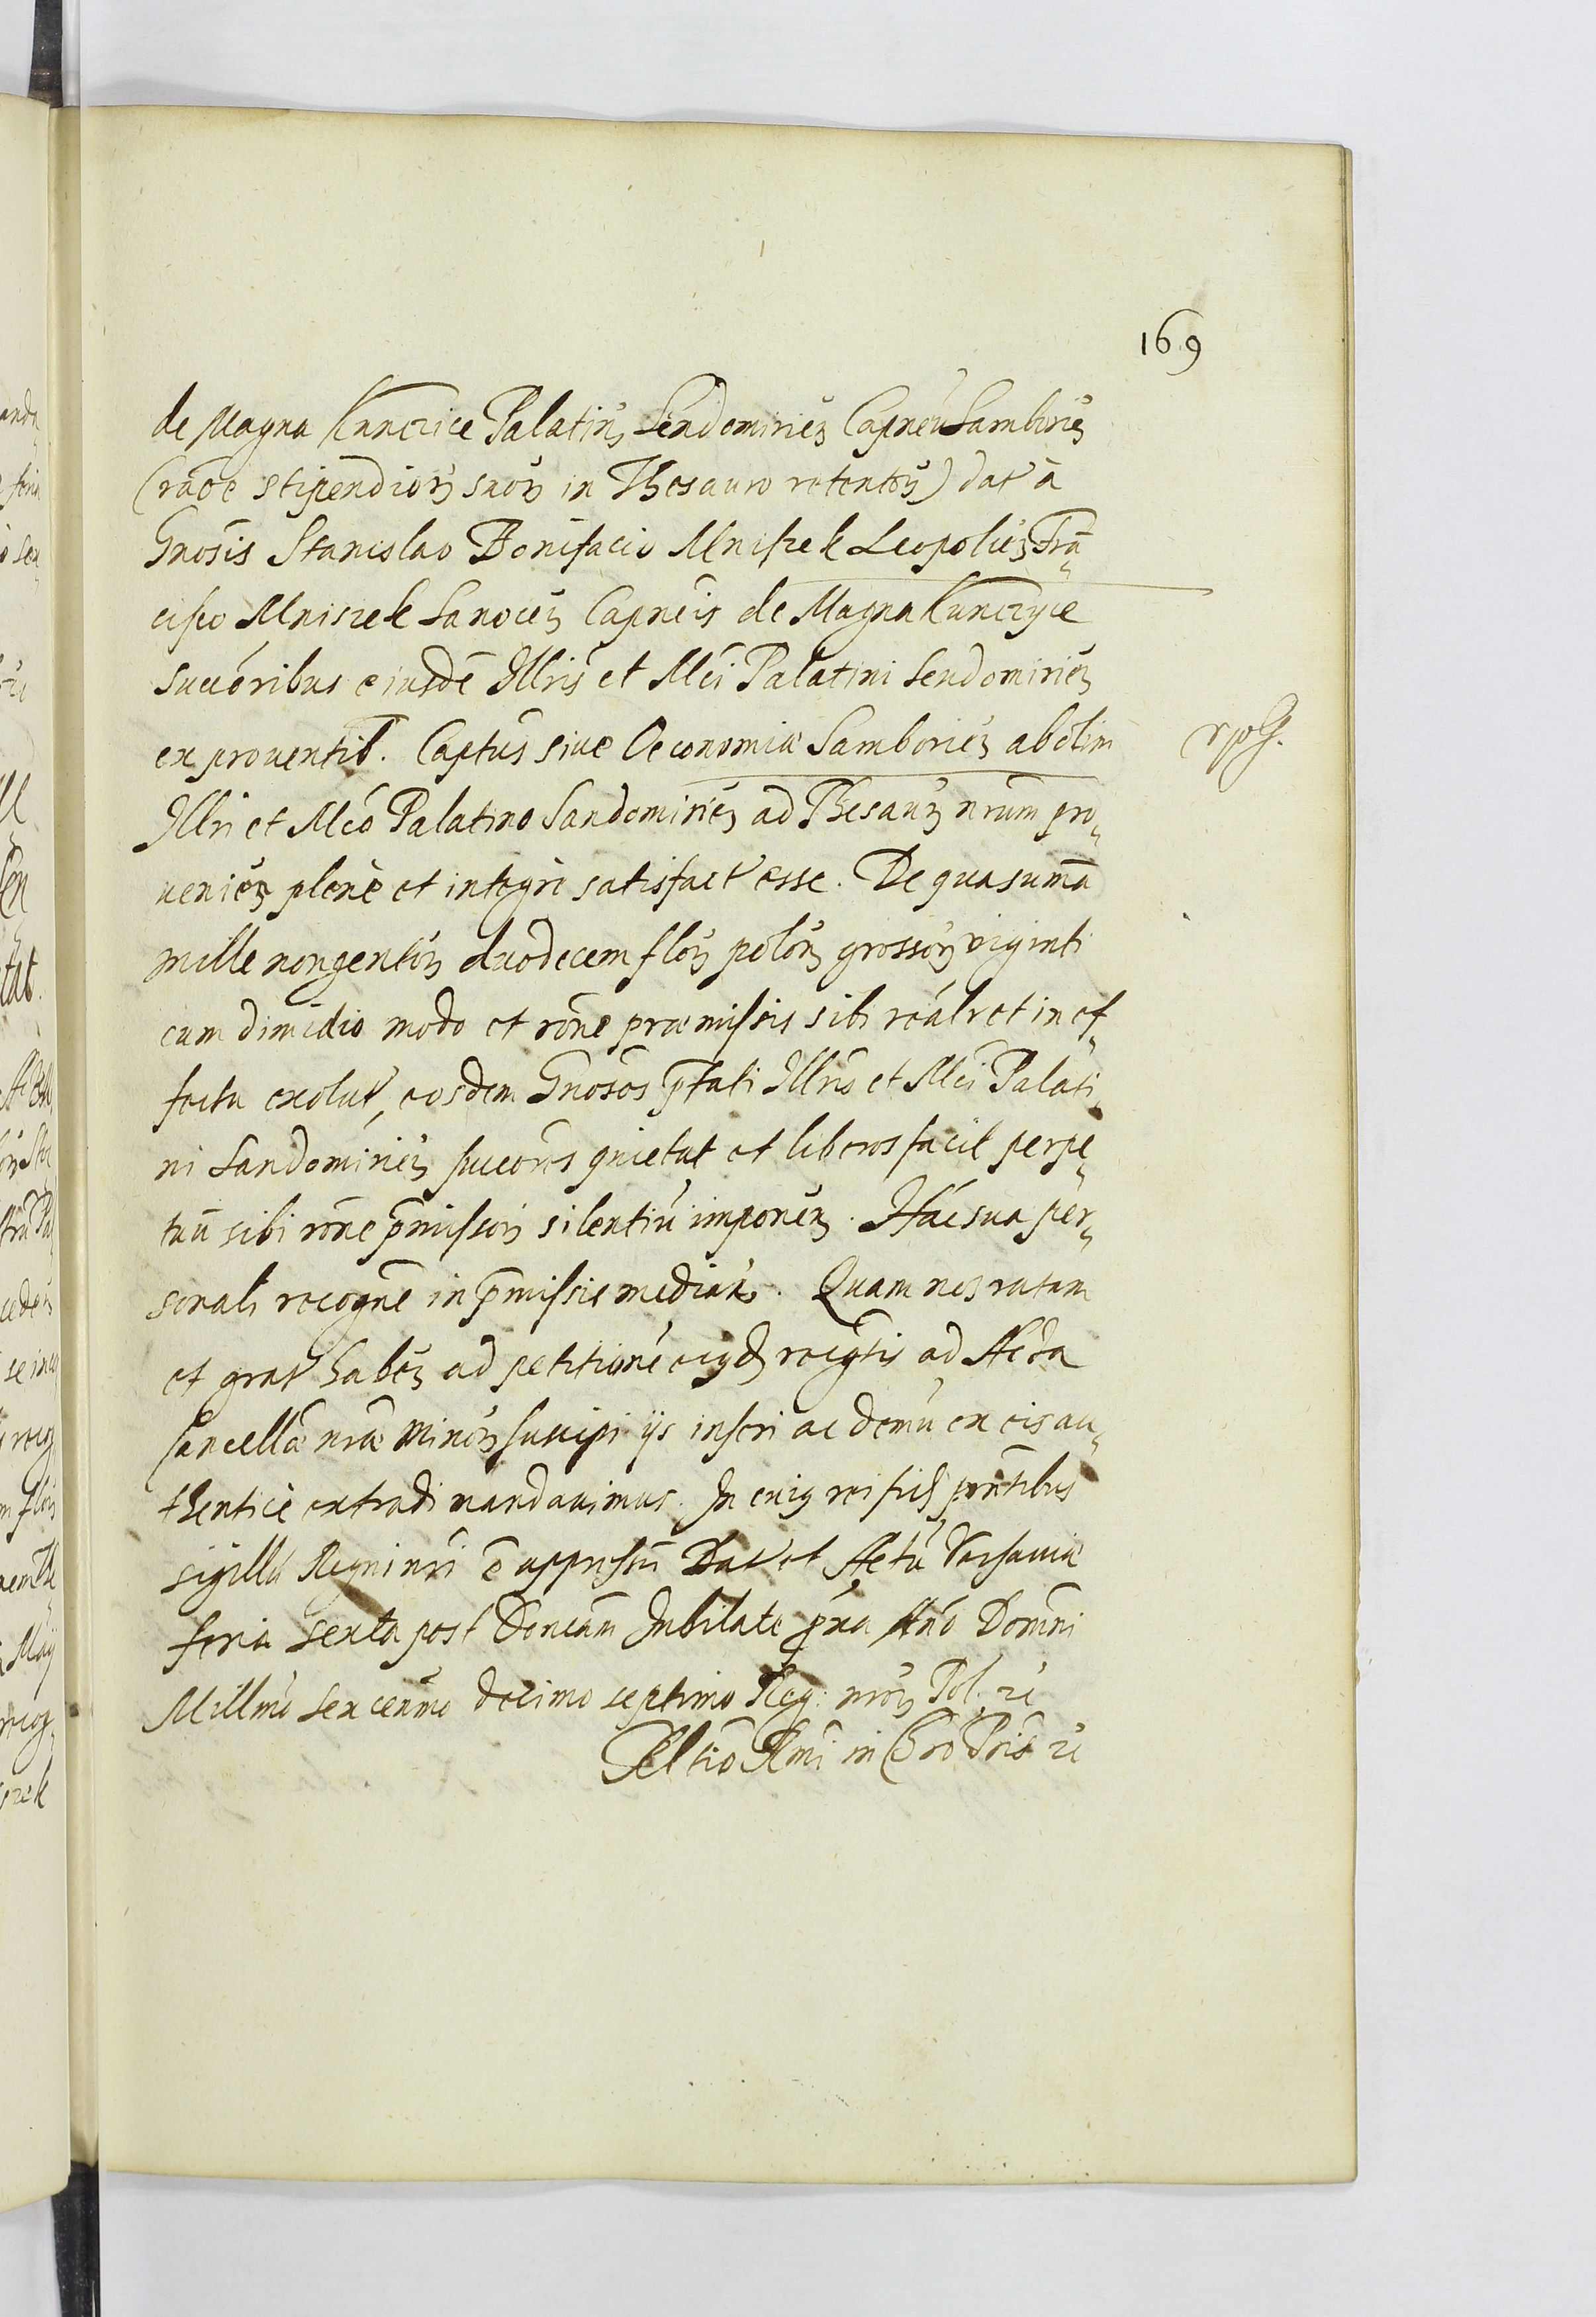 169
de Magna Kunczice Palatinꝫ Sendomirieñ Capneũ Samborieñ
(raõe stipendiorꝫ suorꝫ in Thesauro retentorꝫ) dat à
Gnosis Stanislao Bonifacio Mniszek Leopolieñ Frã„
cisco Mniszek Sanoceñ Capneis de Magna Kunczyce
succoribus eiusdẽ Illris et Mci Palatini Sendomirieñ
ex prouentib. Captus siue Oeconomiæ Samborieñ ab olim
Illri et Mco Palatino Sandomirieñ ad Thesaurꝫ nrum pro„
uenieñ plenè et integrè satisfact esse. De qua sumã
mille nongentorꝫ duodecem florꝫ polonꝫ grossorꝫ viginti
cum dimidio modo et rõne præmissis sibi realr et in ef„
fectu exolut, eosdem Gnosos ptati Illris et Mci Palati„
ni Sandomirieñ succores quietat et liberos facit perpe„
tuũ sibi rõne pmissorꝫ silentiũ imponenꝫ. Hac sua per„
sonali recogne in pmissis median. Quam nos ratam
et grat habenꝫ ad petitionẽ eiusd recogtis ad Acta
Cancellæ nræ Minorꝫ suscipi ijs inseri ac demũ ex eis au„
thenticè extradi mandauimus. In cuiꝯ rei fidẽ pntibus
sigillũ Regni nri ẽ appressũ Dat et Actũ Varsauiæ
feria sexta post Dnicam Jubilate pxa Ano Domini
Millmo sexcenmo decimo septimo Reg: nrorꝫ Pol. zc
Rltio Rmi in Chro Pris zc